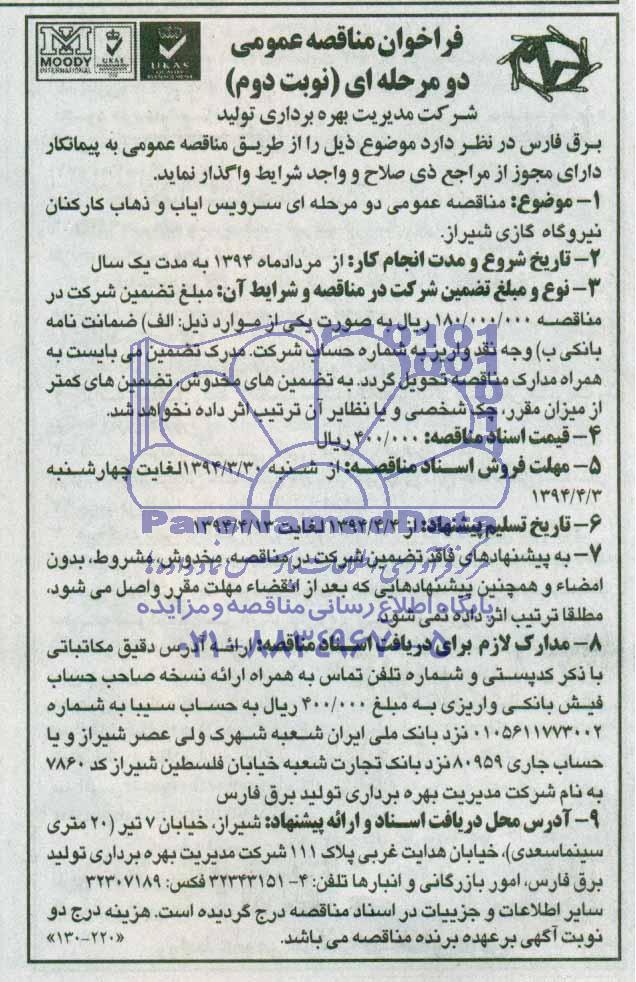 MOODY
INTERNATIONAL
UKAS
UKAS
QUALITY
MANAGEMENT
فراخوان مناقصه عمومی
دو مرحله ای (نوبت دوم)
شرکت مدیریت بهره برداری تولید
برق فارس در نظر دارد موضوع ذیل را از طریق مناقصه عمومی به پیمانکار
دارای مجوز از مراجع ذی صلاح و واجد شرایط واگذار نماید.
۱- موضوع: مناقصه عمومی دو مرحله ای سرویس ایاب و ذهاب کارکنان
نیروگاه گازی شیراز.
۲- تاریخ شروع و مدت انجام کار: از مردادماه ۱۳۹۴ به مدت یک سال
۳- نوع و مبلغ تضمین شرکت در مناقصه و شرایط آن: مبلغ تضمین شرکت در
مناقصه ۱۸۰/۰۰۰/۰۰۰ ریال به صورت یکی از موارد ذیل: الف) ضمانت نامه
بانکی ب) وجه نقد واریز به شماره حساب شرکت. مدرک تضمین می بایست به
همراه مدارک مناقصه تحویل گردد. به تضمین های مخدوش، تضمین های کمتر
از میزان مقرر، چک شخصی و یا نظایر آن ترتیب اثر داده نخواهد شد.
۴- قیمت اسناد مناقصه: ۴۰۰/۰۰۰ ریال
۵- مهلت فروش اسناد مناقصه: از شنبه ۱۳۹۴/۳/۳۰ لغایت چهارشنبه
۱۳۹۴/۴/۳
ParsNamadData
۶- تاریخ تسلیم پیشنهاد: از ۱۳۹۴/۴/۴ لغایت ۱۳۹۴/۴/۱۳
۷- به پیشنهادهای فاقد تضمین شرکت در مناقصه، مخدوش، مشروط، بدون
امضاء و همچنین پیشنهادهایی که بعد از انقضاء مهلت مقرر واصل می شود،
پایگاه اطلاع رسانی مناقصه و مزایده
مطلقا ترتیب اثر داده نمی شود.
۰۲۱-۸۸۳۴۹۶۷۰-۵
۸- مدارک لازم برای دریافت اسناد مناقصه: ارائه آدرس دقیق مکاتباتی
با ذکر کدپستی و شماره تلفن تماس به همراه ارائه نسخه صاحب حساب
فیش بانکی واریزی به مبلغ ۴۰۰/۰۰۰ ریال به حساب سیبا به شماره
۰۱۰۵۶۱۱۷۷۳۰۰۲ نزد بانک ملی ایران شعبه شهرک ولی عصر شیراز و یا
حساب جاری ۸۰۹۵۹ نزد بانک تجارت شعبه خیابان فلسطین شیراز کد ۷۸۶۰
به نام شرکت مدیریت بهره برداری تولید برق فارس
۹- آدرس محل دریافت اسناد و ارائه پیشنهاد: شیراز، خیابان ۷ تیر (۲۰ متری
سینماسعدی)، خیابان هدایت غربی پلاک ۱۱۱ شرکت مدیریت بهره برداری تولید
برق فارس، امور بازرگانی و انبارها تلفن: ۴-۳۲۳۴۳۱۵۱ فکس: ۳۲۳۰۷۱۸۹
سایر اطلاعات و جزییات در اسناد مناقصه درج گردیده است. هزینه درج دو
نوبت آگهی بر عهده برنده مناقصه می باشد. «۱۳۰-۲۲۰»